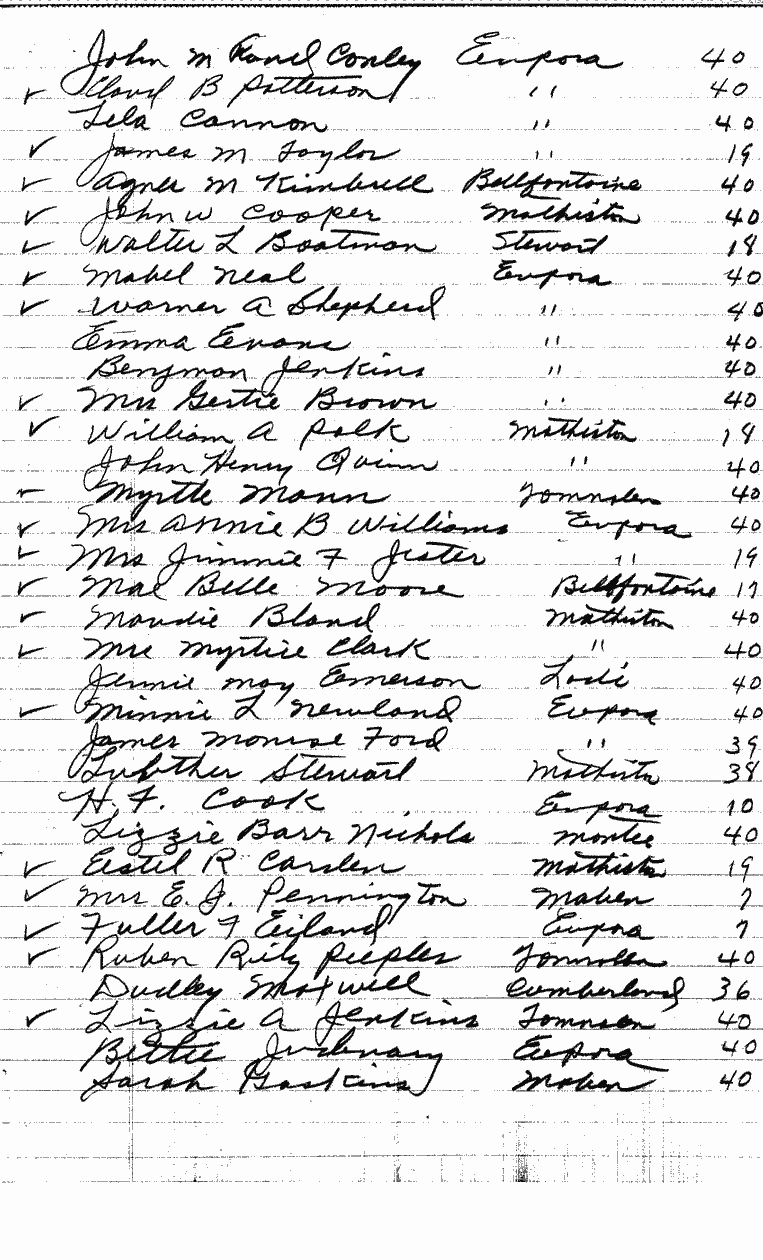 John M Conley Eupora 40
✓ Cloyd B Patterson " 40
Lela Cannon " 40
✓ James M Taylor " 19
✓ Agnes M Kimbrell Bellfontaine 40
✓ John W Cooper Mathiston 40
✓ Walter L Boatman Stewart 18
✓ Mabel Neal Eupora 40
✓ Warner A Shepherd " 40
Emma Evans " 40
Benjmon Jenkins " 40
✓ Mrs Gertie Brown " 40
✓ William A Polk Mathiston 18
John Henry Quinn " 40
✓ Myrtle Mann Tomnolen 40
✓ Mrs Annie B Williams Eupora 40
✓ Mrs Jimmie F Jester " 19
✓ Mae Belle Moore Bellfontaine 17
✓ Maudie Bland Mathiston 40
✓ Mrs Myrtice Clark " 40
Jennie May Emerson Lodi 40
✓ Minnie L Newland Eupora 40
James Monroe Ford " 39
Luther Stewart Mathiston 38
H. F. Cook Eupora 10
Lizzie Barr Nichols Montee 40
✓ Estel R Carden Mathiston 19
✓ Mrs E. J. Pennington Maben 7
✓ Fuller F Eiland Eupora 7
✓ Ruben Peeples Tomnolen 40
Dudley Maxwell Cumberland 36
✓ Lizzie A Jenkins Tomnolen 40
Bettie Eupora 40
Sarah Gaskins Maben 40